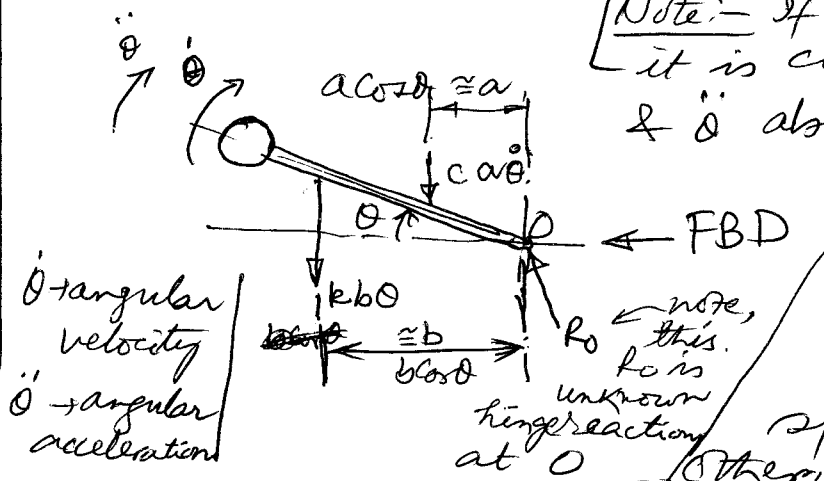 Note:- If
it is
& θ̈
θ̈ θ̇
a cosθ ≅a
c a θ̇
θ
O
FBD
kbθ
θ̇ → angular
velocity
θ̈ → angular
acceleration
≅b
b cosθ
R₀
note,
this.
R₀ is
unknown
hinge reaction
at O